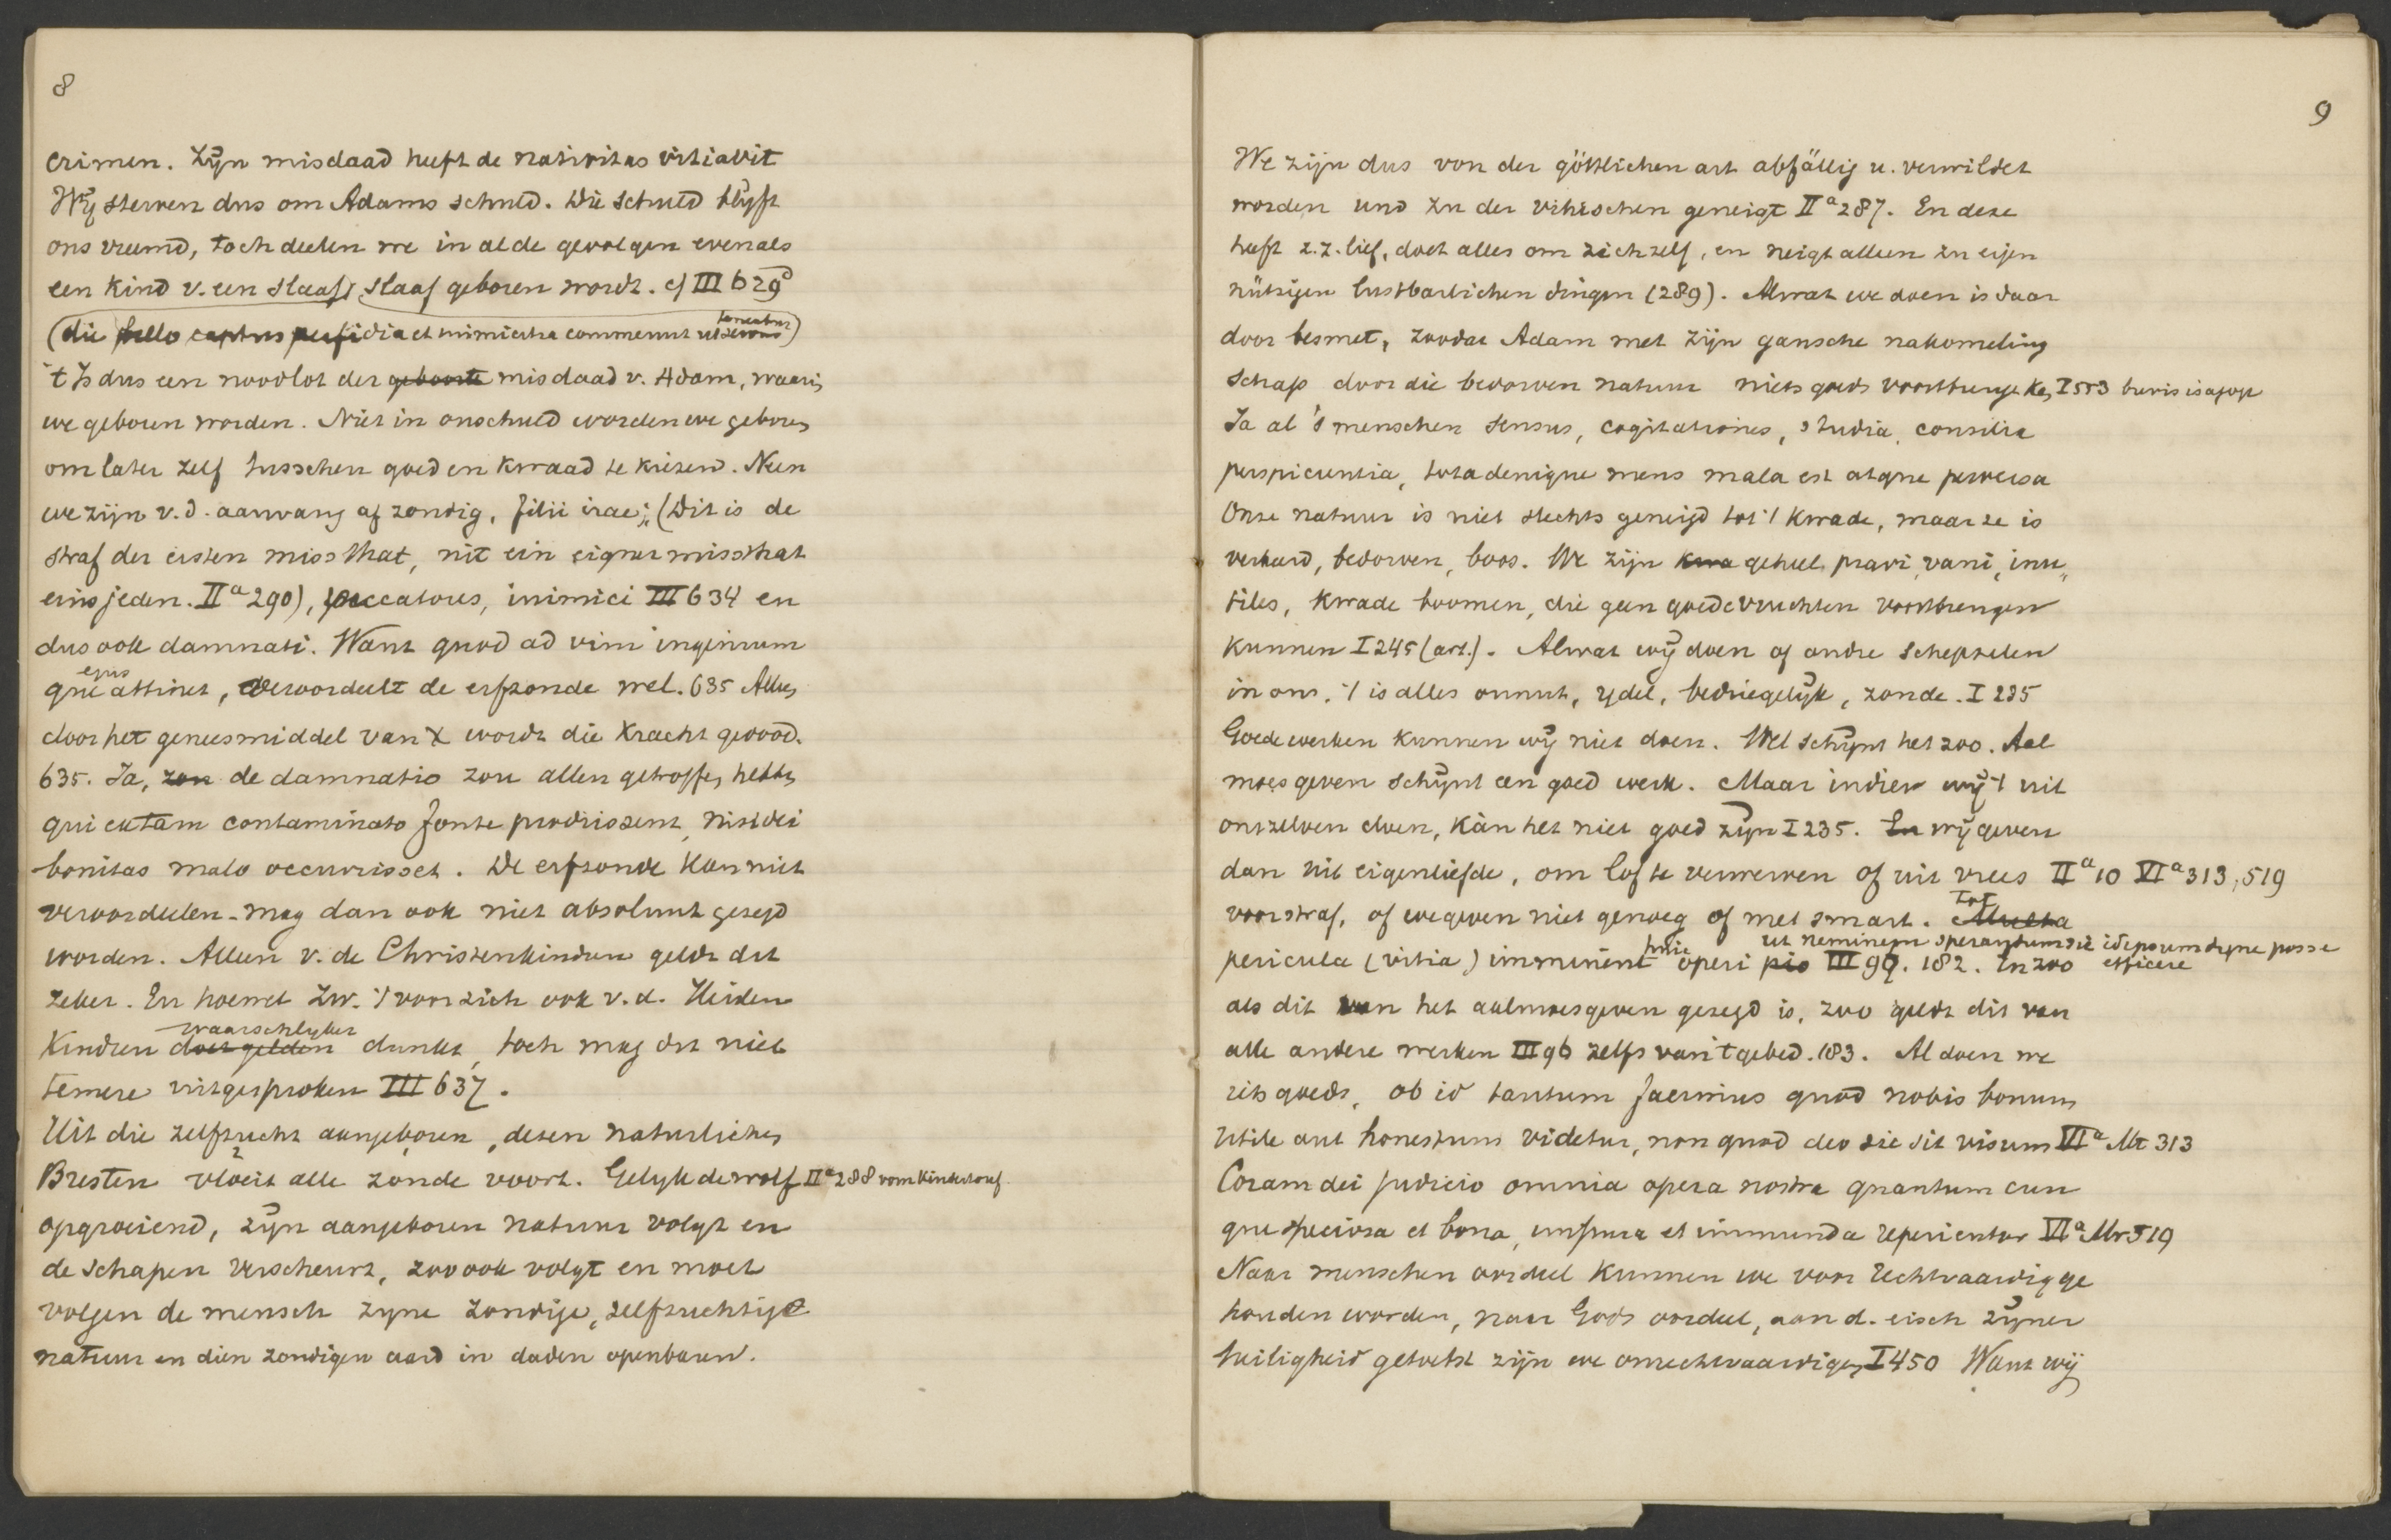 8
crimen. Zijn misdaad heeft de nativitas vitiavit
Wij sterven dus om Adams schuld. Die schuld blijft
ons vreemd, toch deelen we in al de gevolgen evenals
een kind v. een slaaf, slaaf geboren wordt. cf III 629
(die bello captus perfidia et inimicitia commeruit ut servus teneatur)
't Is dus een noodlot der geboorte misdaad v. Adam, waarin
we geboren worden. Niet in onschuld worden we geboren
om later zelf tusschen goed en kwaad te kiezen. Neen
we zijn v.d. aanvang af zondig, filii irae; (Dit is de
straf der ersten missthat, nit ein eigner missthat
eins jeden. IIa 290), peccatores, inimici III 634 en
dus ook damnati. Want quod ad vim ingenium
que ejus attinet, veroordeelt de erfzonde wel. 635 Alleen
door het geneesmiddel van X wordt die kracht gedood.
635. Ja, zou de damnatio zou allen getroffen hebben
qui ex tam contaminato fonte prodiissent, nisi dei
bonitas malo occurrisset. De erfzonde kan niet
veroordeelen - mag dan ook niet absoluut gezegd
worden. Alleen v. de Christenkinderen geldt dit
zeker. En hoewel Zw. 't voor zich ook v.d. Heiden
kinderen doet gelden waarschlyker dunkt, toch mag dit niet
temere uitgesproken III 637.
Uit die zelfzucht aangeboren, dezen naturlichen
Bresten vloeit alle zonde voort. Gelyk de wolf IIa 288 vom Kindertouf.
opgroeiend, zijn aangeboren natuur volgt en
de schapen verscheurt, zoo ook volgt en moet
volgen de mensch zyne zondige, zelfzuchtige
natuur en dien zondigen aard in daden openbaren.
9
We zijn dus von der göttlichen art abfällig u. verwildet
worden und zu der vihischen geneigt IIa 287. En deze
heeft z.z. lief, doet alles om zichzelf, en neigt alleen zu eijen
nützigen lustbarlichen dingen (289). Alwat we doen is daar
door besmet, zoodat Adam met zijn gansche nakomeling
schap door die bedorven natuur niets goeds voortbrengen kan, I 553 brevis isagoge
Ja al 's menschen sensus, cogitationes, studia, consilia
perspicientia, tota denique mens mala est atque perversa
Onze natuur is niet slechts geneigd tot 't kwade, maar ze is
verkeerd, bedorven, boos. We zijn kwa geheel pravi, vani, inu„
tiles, kwade boomen, die geen goede vruchten voortbrengen
kunnen I 245 (art.). Alwat wij doen of andre schepselen
in ons, 't is alles onnut, ydel, bedriegelijk, zonde. I 235
Goede werken kunnen wij niet doen. Wel schijnt het zoo. Aal
moes geven schijnt een goed werk. Maar indien wij 't uit
onszelven doen, kàn het niet goed zijn I 235. En wij geven
dan uit eigenliefde, om lof te verwerven of uit vrees IIa 10 VIa 313, 519
voor straf, of we geven niet genoeg of met smart. Multa Tot
pericula (vitia) imminent huic operi pio ut neminem sperandum sit id ipsum digne posse efficere III 97. 182. En zoo
als dit van het aalmoesgeven gezegd is, zoo geldt dit van
alle andere werken III 96 zelfs van 't gebed. 183. Al doen we
iets goeds, ob id tantum facimus quod nobis bonum
utile aut honestum videtur, non quod deo sic sit visum VIa Mt 313
Coram dei judicio omnia opera nostra quantum cun
que speciosa et bona, impura et immunda reperientur VIa Mr 519
Naar menschen oordeel kunnen we voor rechtvaardig ge
houden worden, naar Gods oordeel, aan d. eisch zijner
heiligheid getoetst zijn we onrechtvaardigen I 450 Want wij